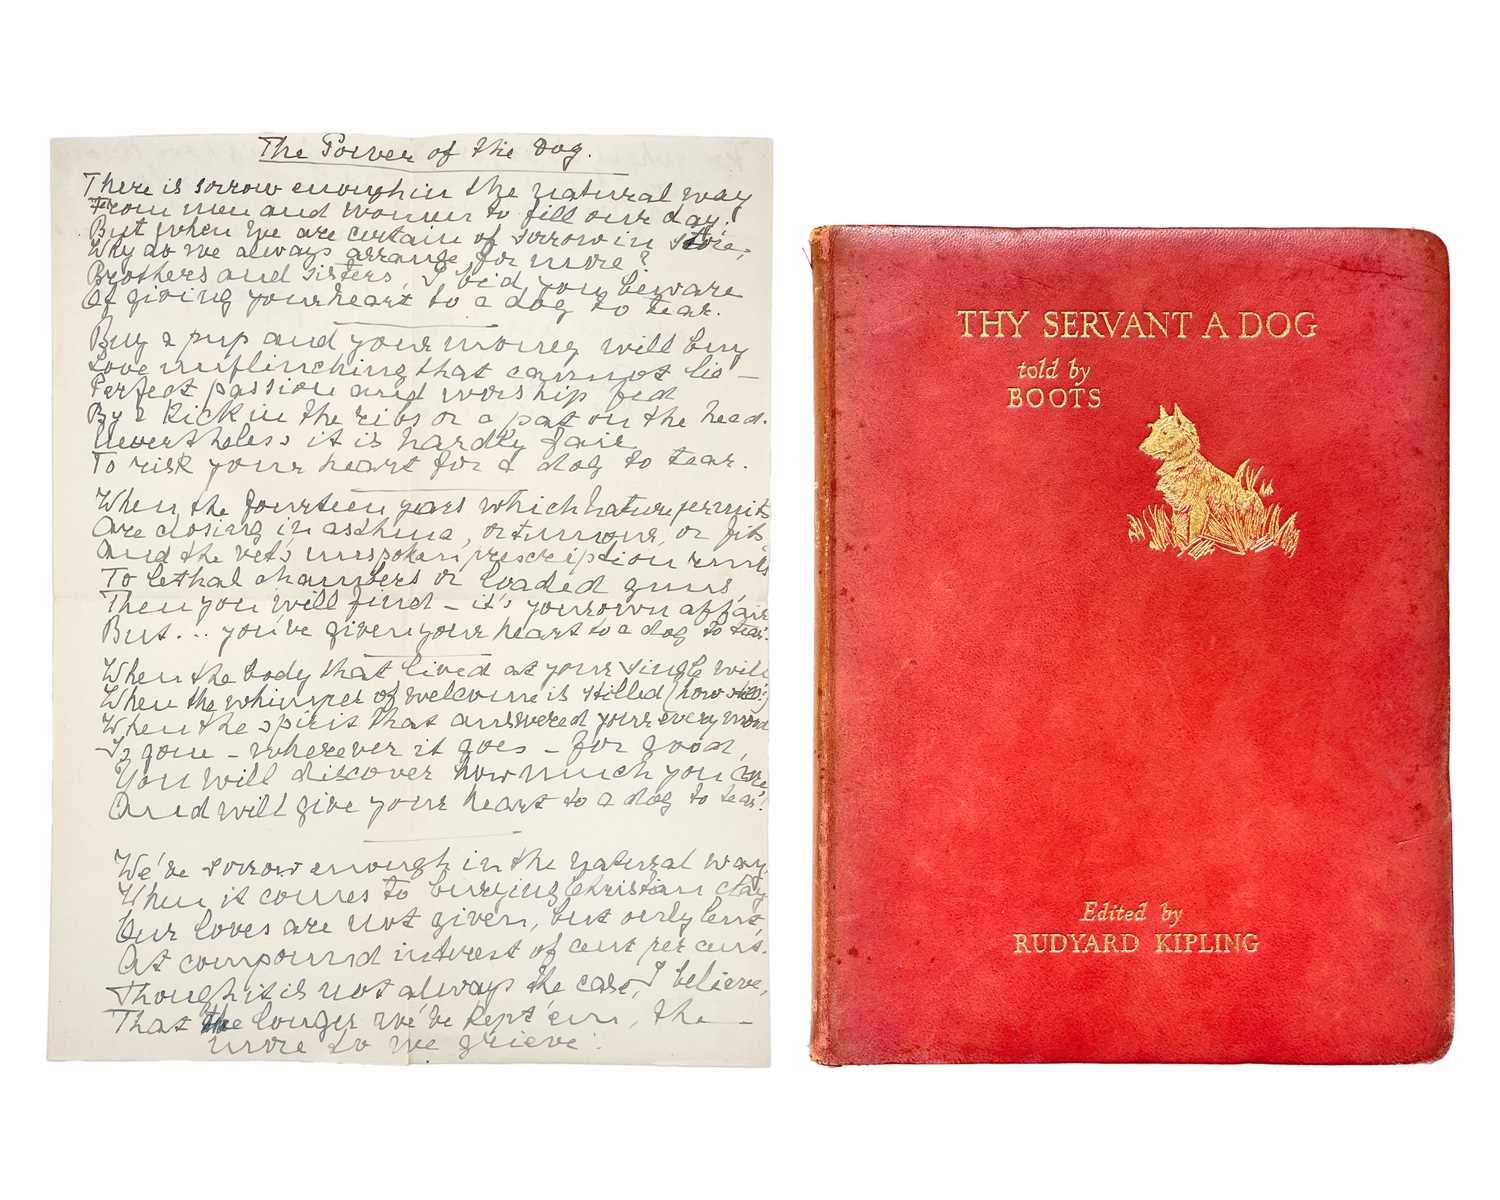 The Power of the Dog.
There is sorrow enough in the natural way
From men and women to fill our day;
But when we are certain of sorrow in store,
Why do we always arrange for more?
Brothers and sisters, I bid you beware
Of giving your heart to a dog to tear.
Buy a pup and your money will buy
Love unflinching that cannot lie –
Perfect passion and worship fed
By a kick in the ribs or a pat on the head.
Nevertheless it is hardly fair
To risk your heart for a dog to tear.
When the fourteen years which nature permits
Are closing in asthma, or tumour, or fits
And the vet's unspoken prescription runs
To lethal chambers or loaded guns
Then you will find – it's your own affair
But... you've given your heart to a dog to tear.
When the body that lived at your single will
When the whimper of welcome is stilled (how still!)
When the spirit that answered your every mood
Is gone – wherever it goes – for good,
You will discover how much you care,
And will give your heart to a dog to tear!
We've sorrow enough in the natural way,
When it comes to burying Christian clay
Our loves are not given, but only lent,
At compound interest of cent per cent.
Though it is not always the case, I believe,
That the longer we've kept 'em, the –
more do we grieve:
THY SERVANT A DOG
told by
BOOTS
Edited by
RUDYARD KIPLING